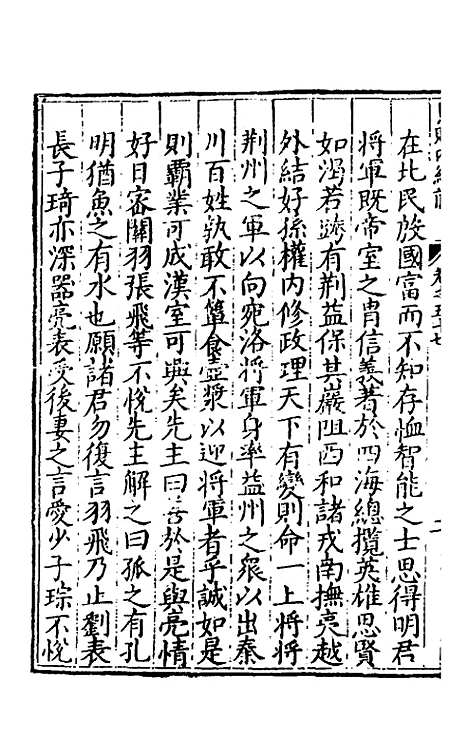 在北民殷國富而不知存恤智能之士思得明君
將軍既帝室之胄信義著於四海總攬英雄思賢
如渴若跨有荆益保其嚴阻西和諸戎南撫夷越
外結好孫權内修政理天下有變則命一上將將
荆州之軍以向宛洛將軍身率益州之衆以出秦
川百姓孰敢不簞食壺漿以迎將軍者乎誠如是
則霸業可成漢室可興矣先主曰善於是與亮情
好日審關羽張飛等不悅先主解之曰孤之有孔
明猶魚之有水也願諸君勿復言羽飛乃止劉表
長子琦亦深器亮表受後妻之言愛少子琮不悅